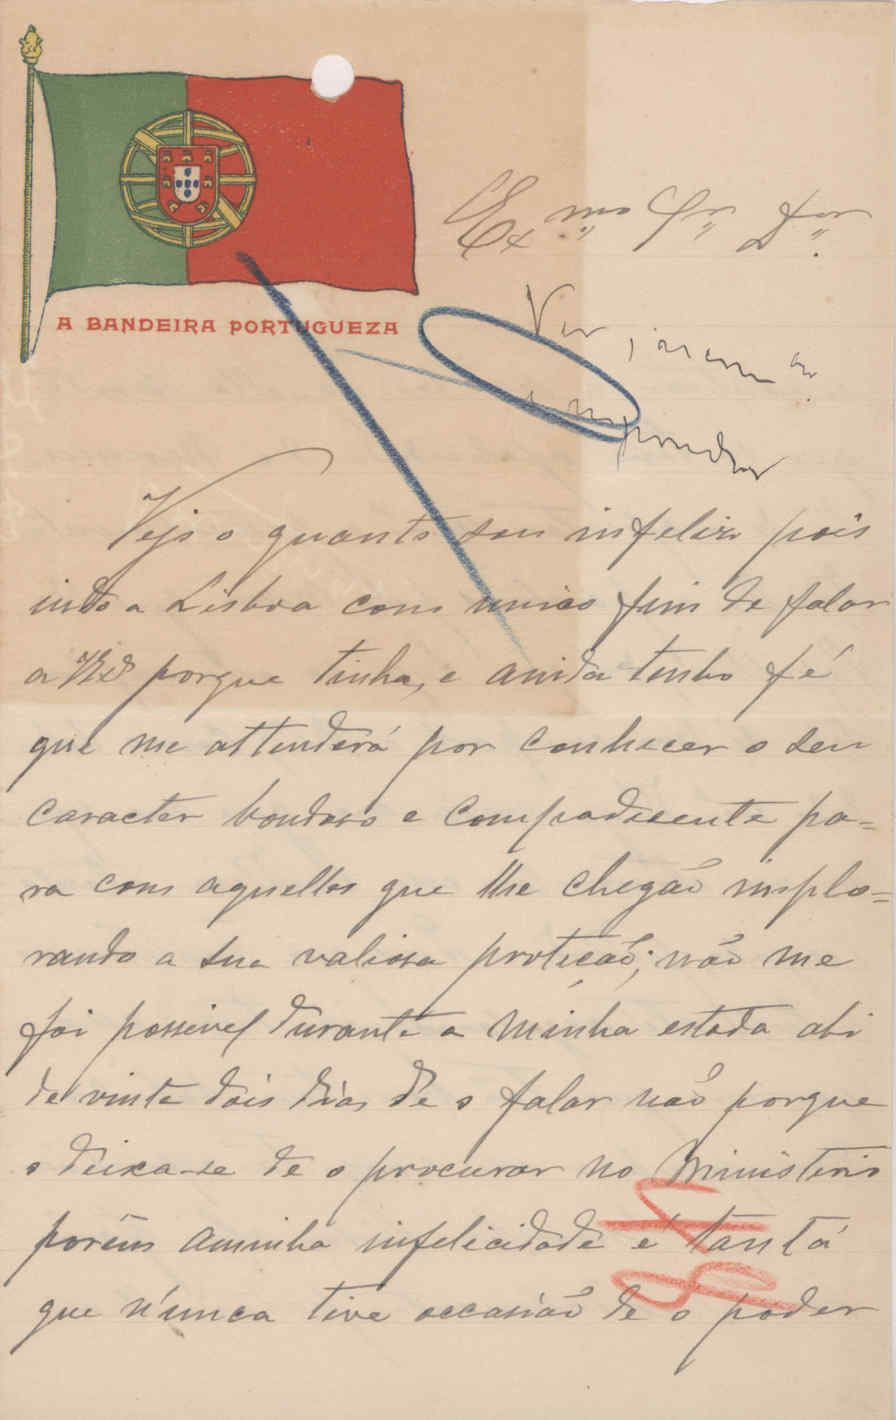 A BANDEIRA PORTUGUEZA
Exmo Sr Dor
Ver
responder
Vejo o quanto sou infeliz pois
indo a Lisboa com unico fim de falar
a VExa porque tinha, e ainda tenho fé
que me attenderá por conhecer o seu
caracter bondoso e compadecente pa=
ra com aquelles que lhe chegão implo=
rando a sua valiosa proteção; não me
foi possivel durante a minha estada ahi
de vinte dois dias de o falar não porque
o deixa-se de o procurar no Ministerio
porém aminha infelicidade é tanta
que nunca tive occasião de o poder